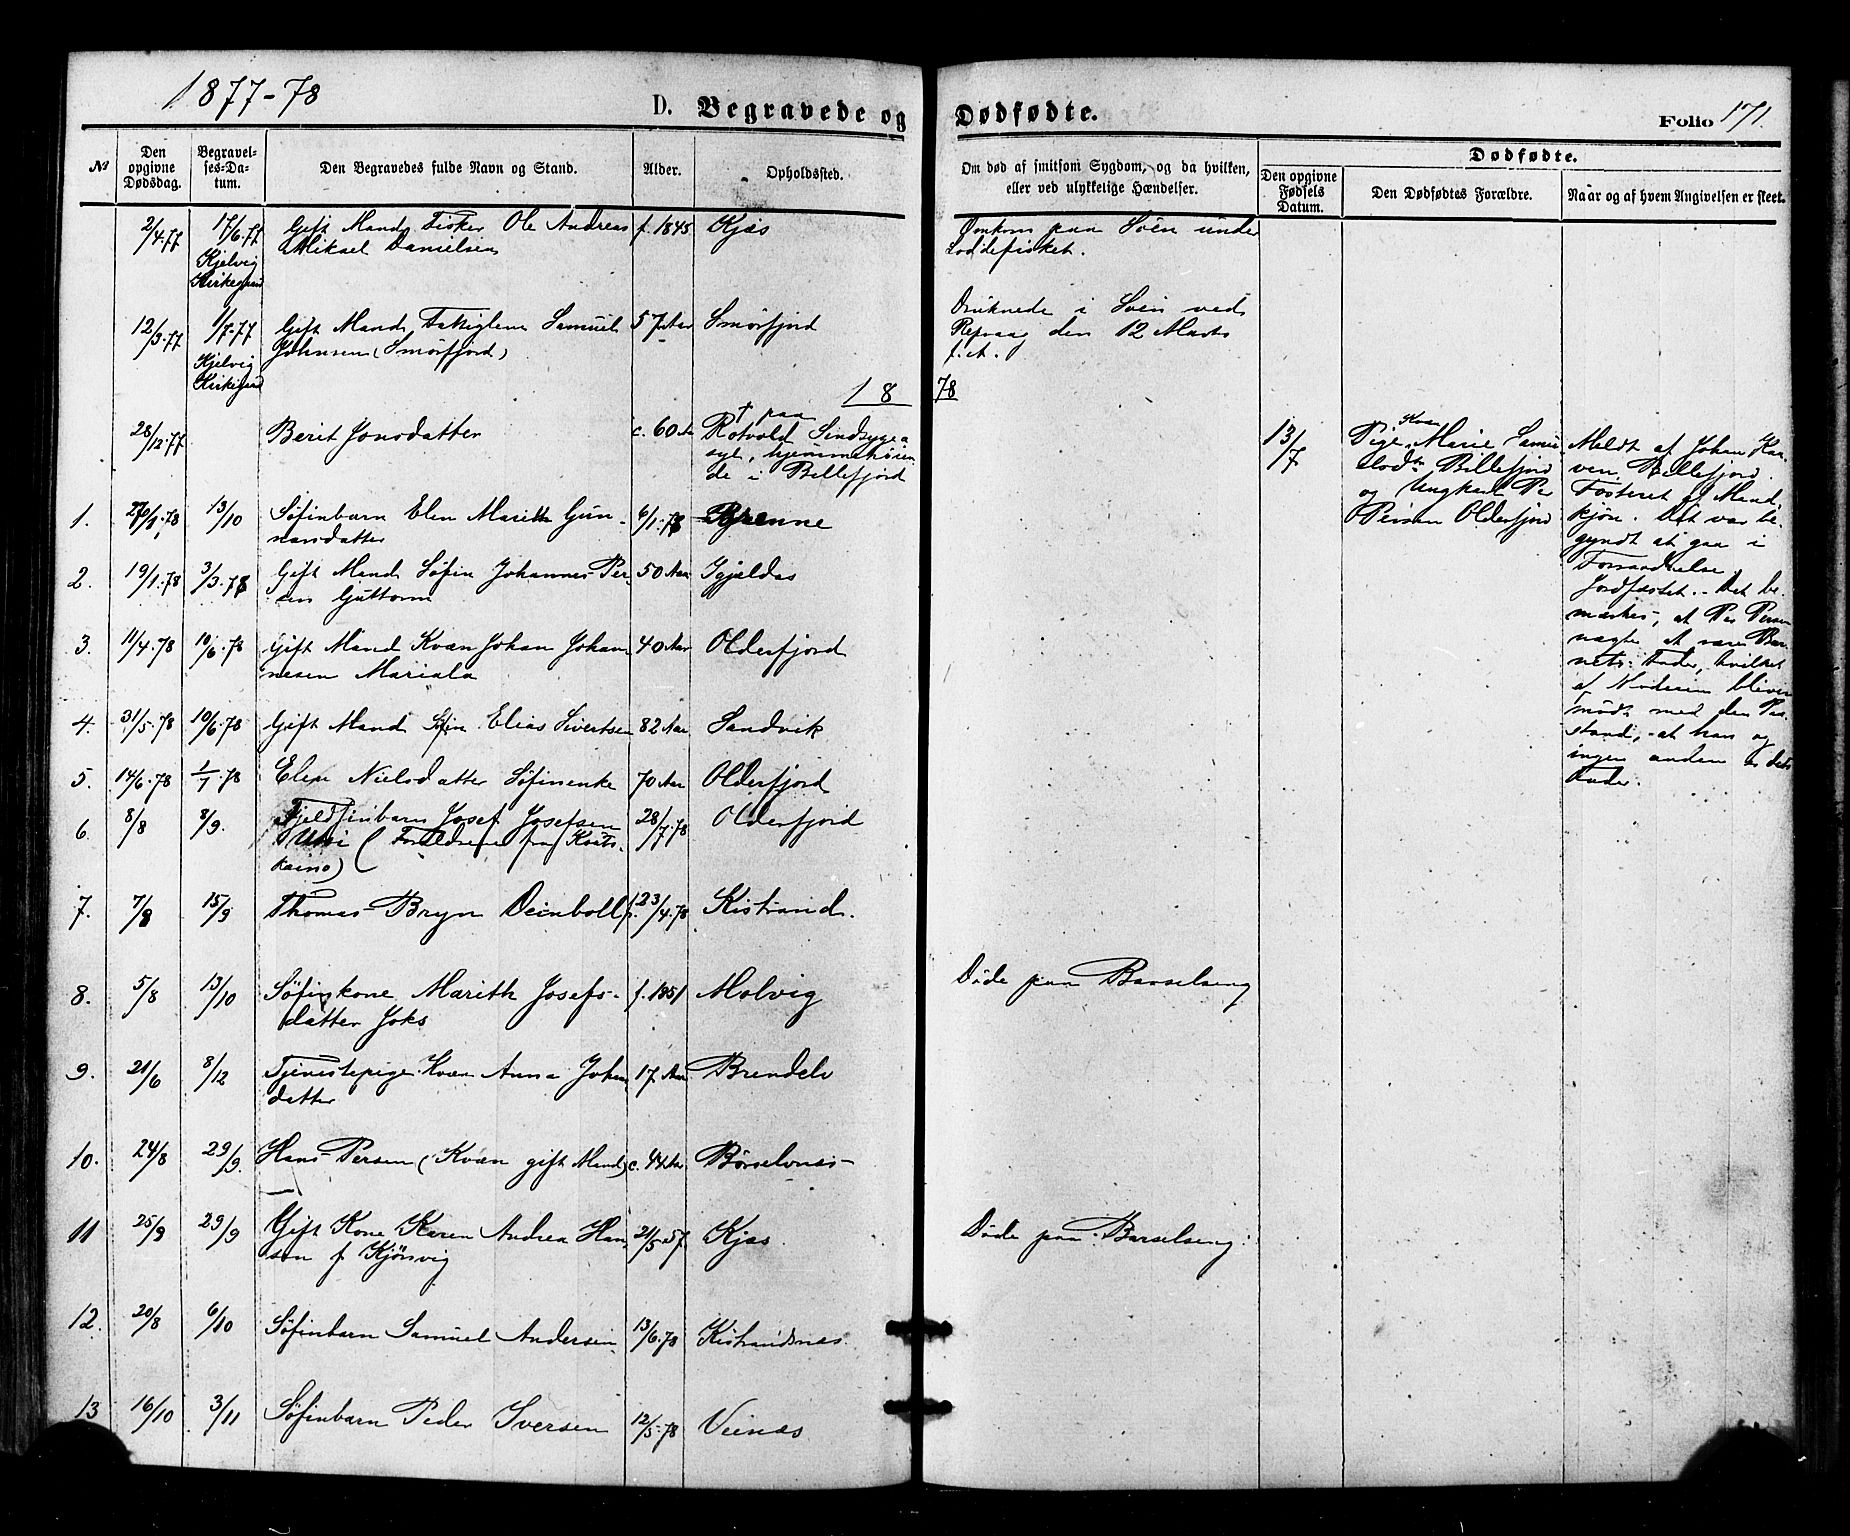 1877-78
D. Begravede og Dødfødte.
Folio 171.
№
Den opgivne Dødsdag.
Begravelses-Datum.
Den Begravedes fulde Navn og Stand.
Alder.
Opholdssted.
Om død af smitsom Sygdom, og da hvilken, eller ved ulykkelige Hændelser.
Dødfødte.
Den opgivne Fødsels Datum.
Den Dødfødtes Forældre.
Naar og af hvem Angivelsen er skeet.
2/4.77 17/6.77 Gift Mand Fisker Ole Andreas f. 1845 Kjæs Omkom paa Söen under
Kjelvig Mikael Danielsen Loddefisket.
Kirkegaard
12/3.77 1/7.77 Gift Mand, Fattiglem Samuel 57 Aar Smörfjord Druknede i Söen ved
Kjelvig Johnsen (Smörfjord) Repvaag den 12 Marts
Kirkegaard f. A.
1878
28/12.77 Berit Jonsdatter c. 60 Aar † paa
Rotvold Sindsyge a
syl, hjemmehören
de i Billefjord
13/7 Pige, Kvæn Marie Samu
elsdtr Billefjord
og Ungkarl Per
Persen Olderfjord
Meldt af Johan Kar
ven, Billefjord.
Fosteret af Mand
kjön. Det var be
gyndt at gaa i
Forraadnelse.
Jordfæstet. - Det be
mærkes, at Per Persen
nægter at være Bar
nets Fader, hvilket
af Moderen bliver
mödt med den Paa
stand, - at han og
ingen anden er dets
Fader.
1. 13/10 Söfinbarn Elen Marith Gun 6/1.78 Brenne
narsdatter
2. 19/1.78 3/3.78 Gift Mand Söfin Johannes Per 50 Aar Igjeldas
sen Guttorm
3. 11/4.78 10/6.78 Gift Mand Kvæn Johan Johan 40 Aar Olderfjord
nesen Mariala
4. 31/5.78 10/6.78 Gift Mand Söfin Elias Sivertsen 82 Aar Sandvik
5. 14/6.78 1/7.78 Elen Nielsdatter Söfinenke 70 Aar Olderfjord
6. 8/8 8/9. Fjeldfinbarn Josef Josefsen 28/7.78 Olderfjord
Utsi (Forældrene fra Kauto
kaino)
7. 7/8 15/9 Thomas Bryn Deinboll f. 23/4.78 Kistrand.
8. 5/8 13/10 Söfinkone Marith Josefs- f. 1851 Molvig Döde paa Barselseng
datter Joks
9. 21/6 8/12 Tjenestepige Kvæn Anna Johan 17 Aar Brendelv
datter
10. 24/8 29/9. Hans Persen (Kvæn gift Mand) c. 44 Aar Börselvnes
11 25/9 29/9 Gift Kone Karen Andrea Han 21/5.57 Kjæs Döde paa Barselseng.
sen f. Kjönsvig
12. 20/8 6/10 Söfinbarn Samuel Andersen 13/6.78 Kistrandsnæs.
13 16/10 3/11 Söfinbarn Peder Iversen 12/5.78 Veinæs